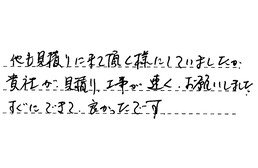 他も見積りに来て頂く様にしていましたが
貴社が見積り、工事が速く、お願いしました
すぐにできて、良かったです